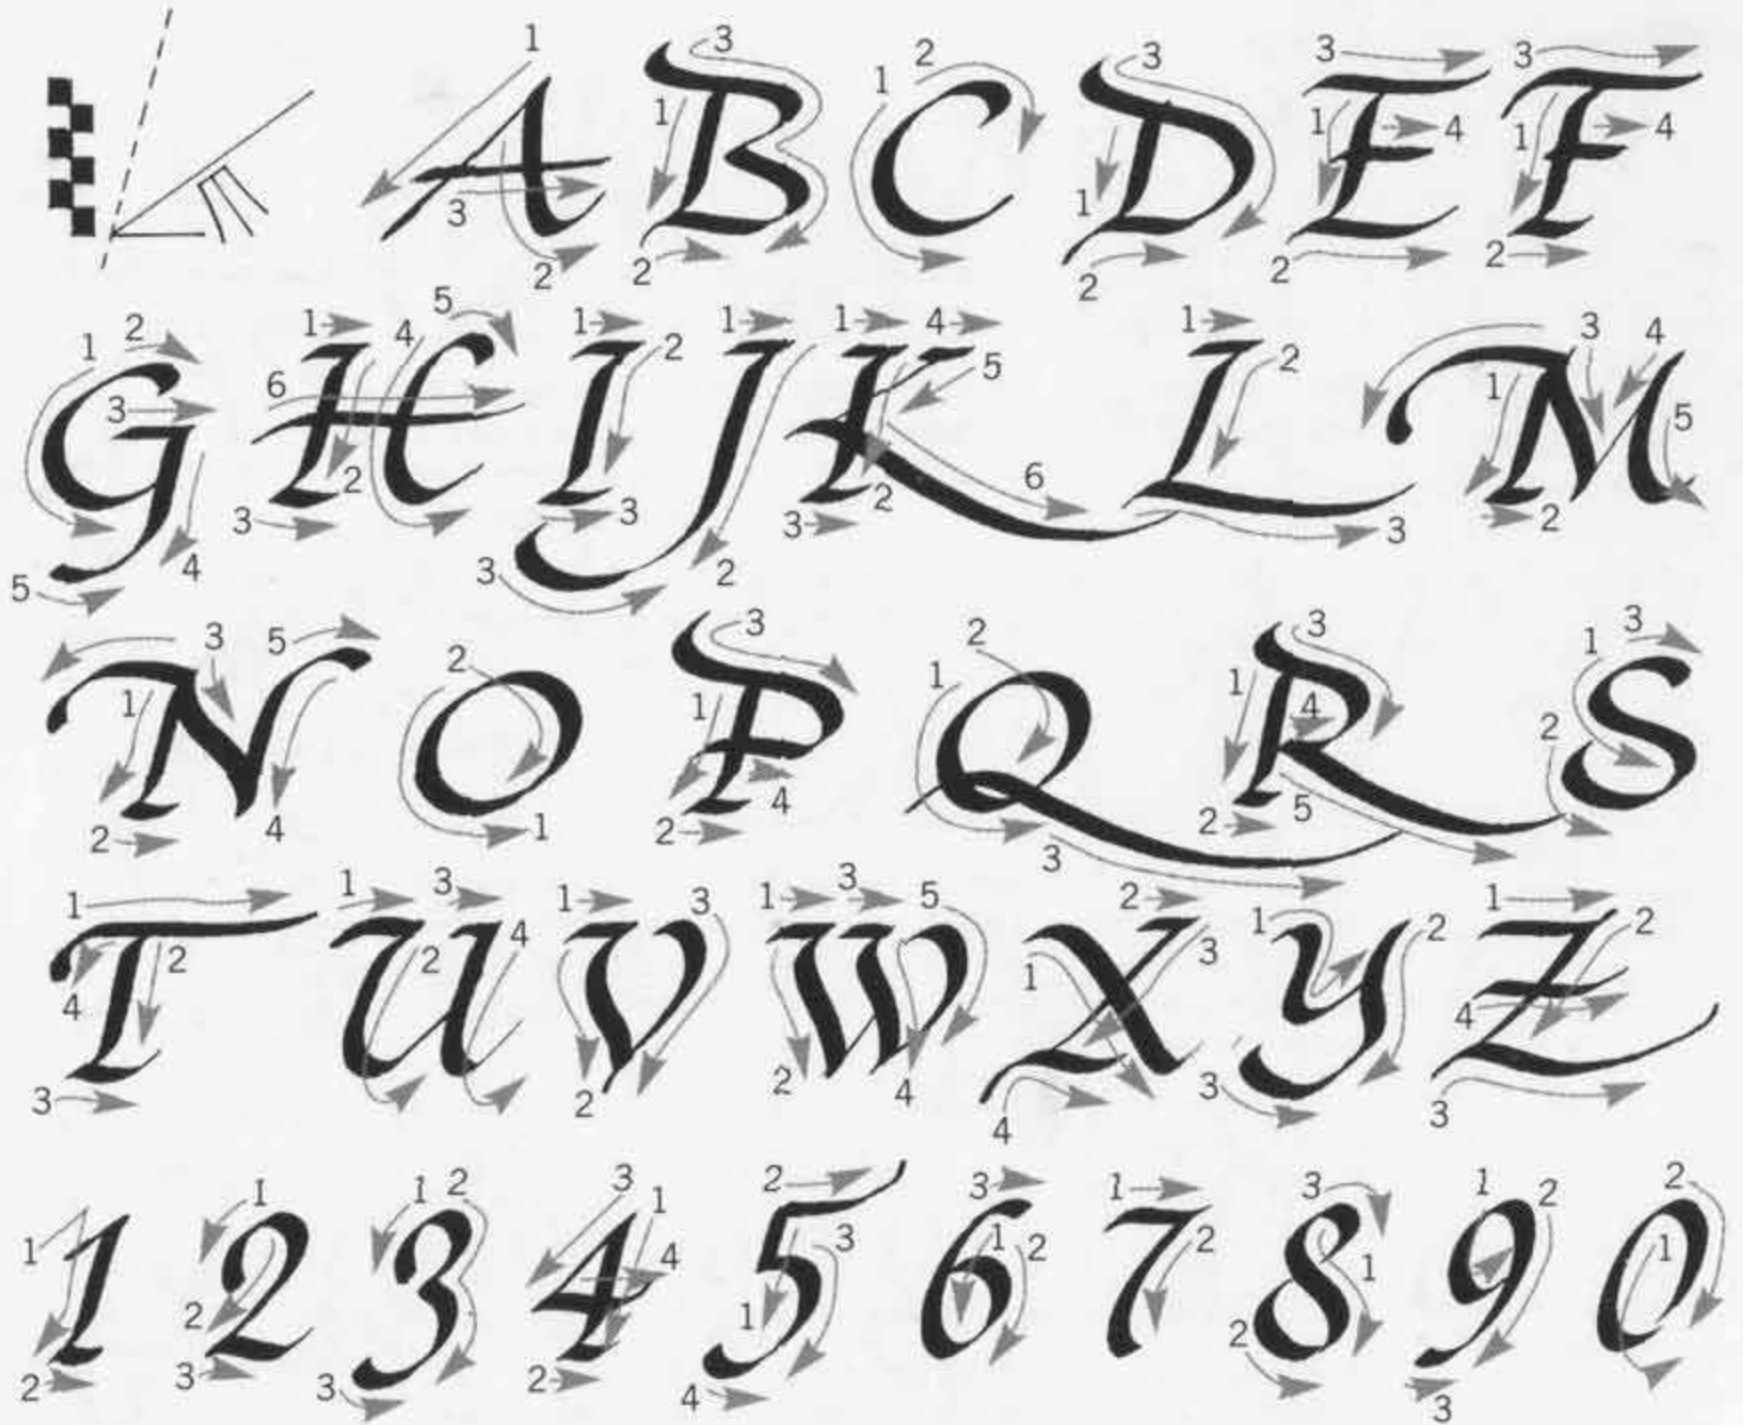 A B C D E F
G H I J K L M
N O P Q R S
T U V W X Y Z
1 2 3 4 5 6 7 8 9 0